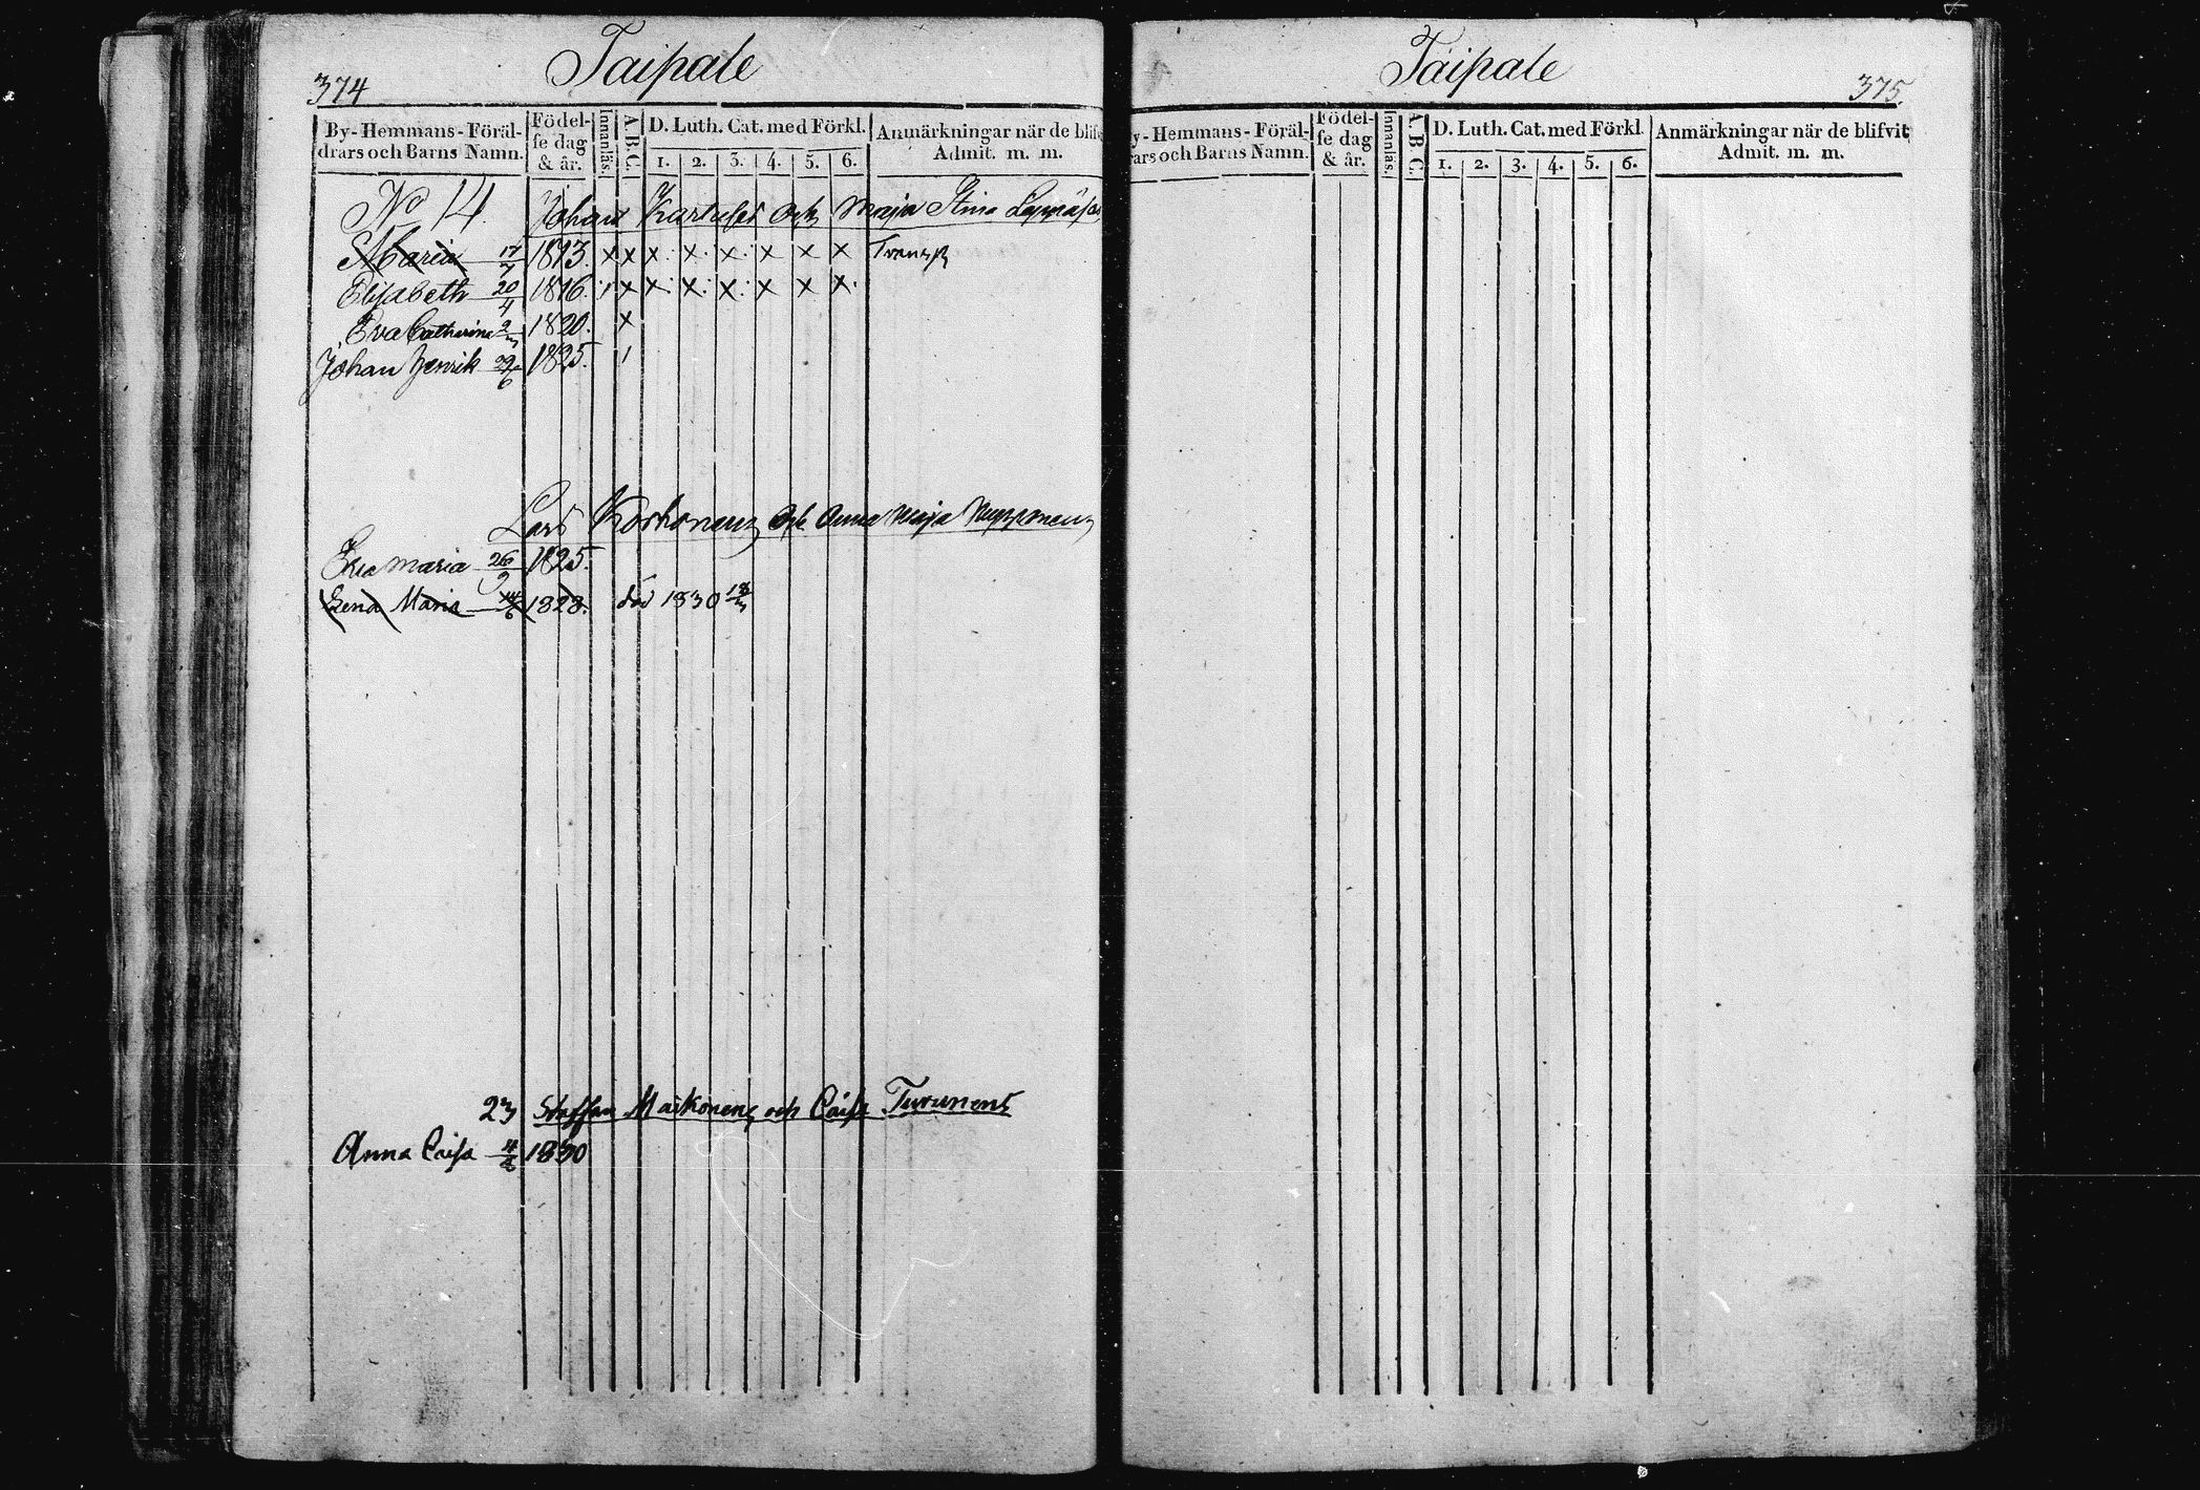 374
Taipale
By-Hemmans-Föräl-
drars och Barns Namn.
Födel-
se dag
& år.
Innanläs.
A.B.C.
D. Luth. Cat. med Förkl.
1. 2. 3. 4. 5. 6.
Anmärkningar när de blif
Admit. m. m.
No 14. Johan och Maja Stina
Maria 17/7 1813. x x x x x x x x
Elisabeth 20/4 1816. 1 x x x x x x x
Eva Catharina 1820. x
Johan Henrik 29/6 1825. 1
Lars Korhonens och Anna Maja
Eva Maria 26/9 1825.
Lena Maria 1828. död 1830
23 Staffan och Caisa Turunens
Anna Caisa 1830
Taipale
375.
y-Hemmans-Föräl-
ars och Barns Namn.
Födel-
se dag
& år.
Innanläs.
A.B.C.
D. Luth. Cat. med Förkl.
1. 2. 3. 4. 5. 6.
Anmärkningar när de blifvit
Admit. m. m.